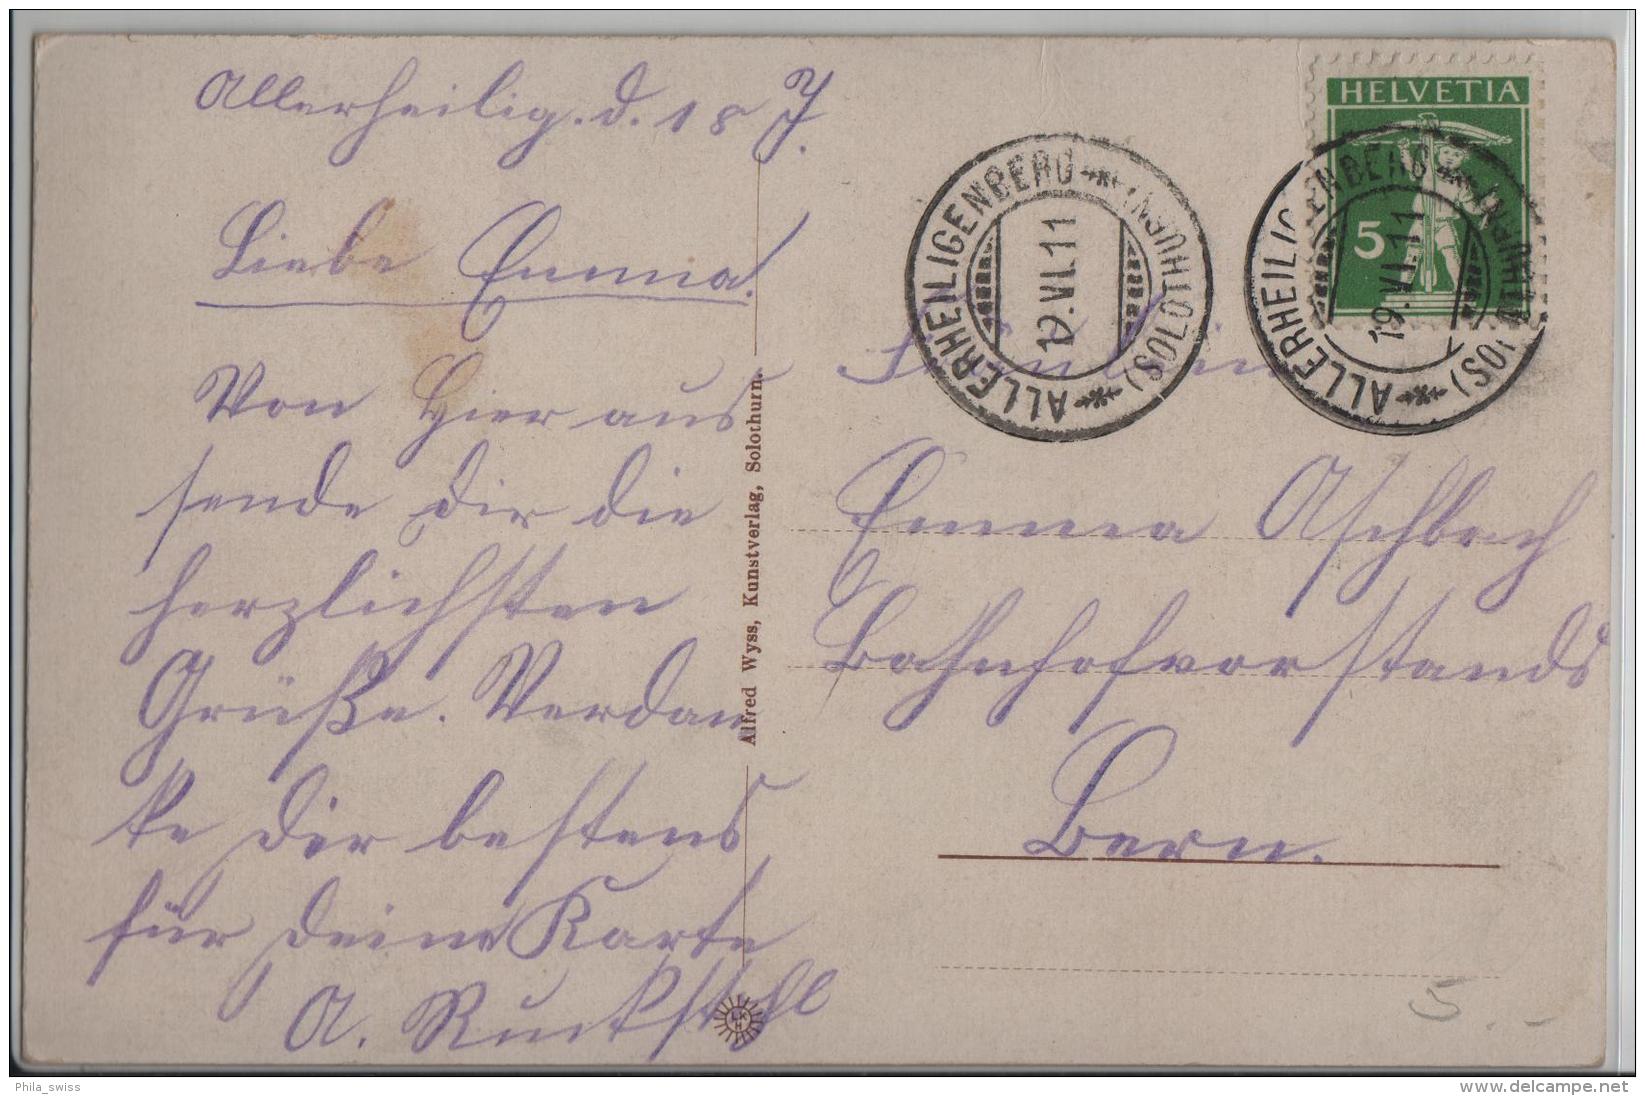 Allerheilig. d. 18 J.
Liebe Emma!
Von Hier aus
sende dir die
herzlichsten
Grüße. Verdan
ke dir bestens
für deine Karte
A. Ruckstuhl
Alfred Wyss, Kunstverlag, Solothurn.
HELVETIA
5
ALLERHEILIGENBERG (SOLOTHURN)
19.VI.11
ALLERHEILIGENBERG (SOLOTHURN)
19.VI.11
Fräulein
Emma Aschbach
Bahnhofvorstands
Bern.
5.-
Phila_swiss
www.delcampe.net